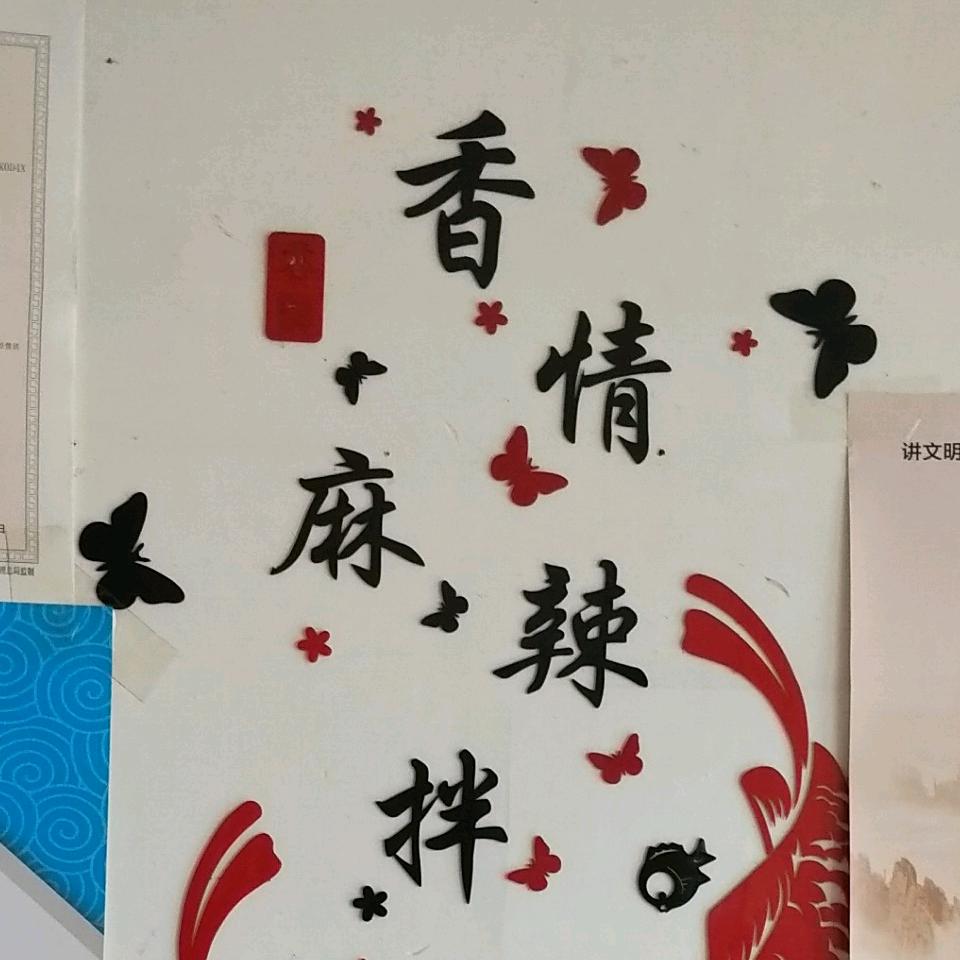 香
情
麻
辣
拌
讲文明
KODAX